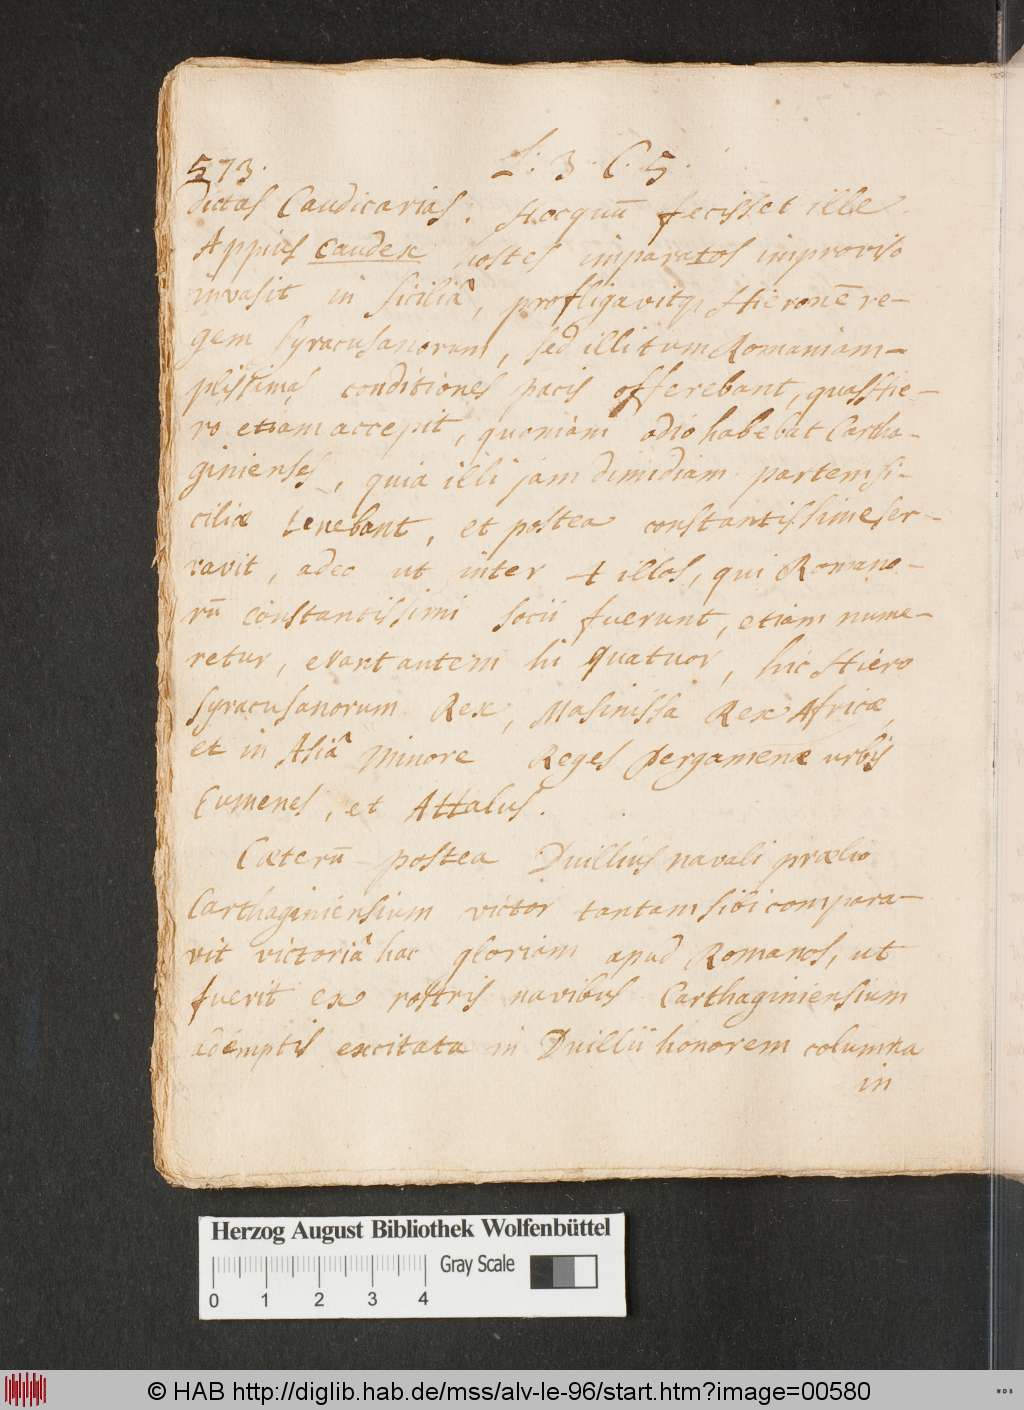 573. L. 3. C. 5.
dictas Caudicarias. Hocquū fecisset ille
Appius Caudex hostes imparatos improviso
invasit in Siciliâ, profligavitq; Hieronē re-
gem Syracusanorum, sed illi tum Romani am-
plissimas conditiones pacis offerebant, quas Hie-
ro etiam accepit, quoniam odio habebat Cartha-
ginienses, quia illi jam dimidiam partem Si-
ciliæ tenebant, et postea constantissime ser-
vavit, adeo ut inter + illos, qui Romano-
rū constantissimi socii fuerunt, etiam nume-
retur, erant autem hi quatuor, hic Hiero
Syracusanorum Rex, Masinissa Rex Africæ,
et in Asiâ Minore Reges Pergamenæ urbis
Eumenes, et Attalus.
Cæterū postea Duillius navali prælio
Carthaginiensium victor tantam sibi compara-
vit victoriâ hac gloriam apud Romanos, ut
fuerit ex rostris navibus Carthaginiensium
ademptis excitata in Duillii honorem columna
in
Herzog August Bibliothek Wolfenbüttel
Gray Scale
0 1 2 3 4
© HAB http://diglib.hab.de/mss/alv-le-96/start.htm?image=00580